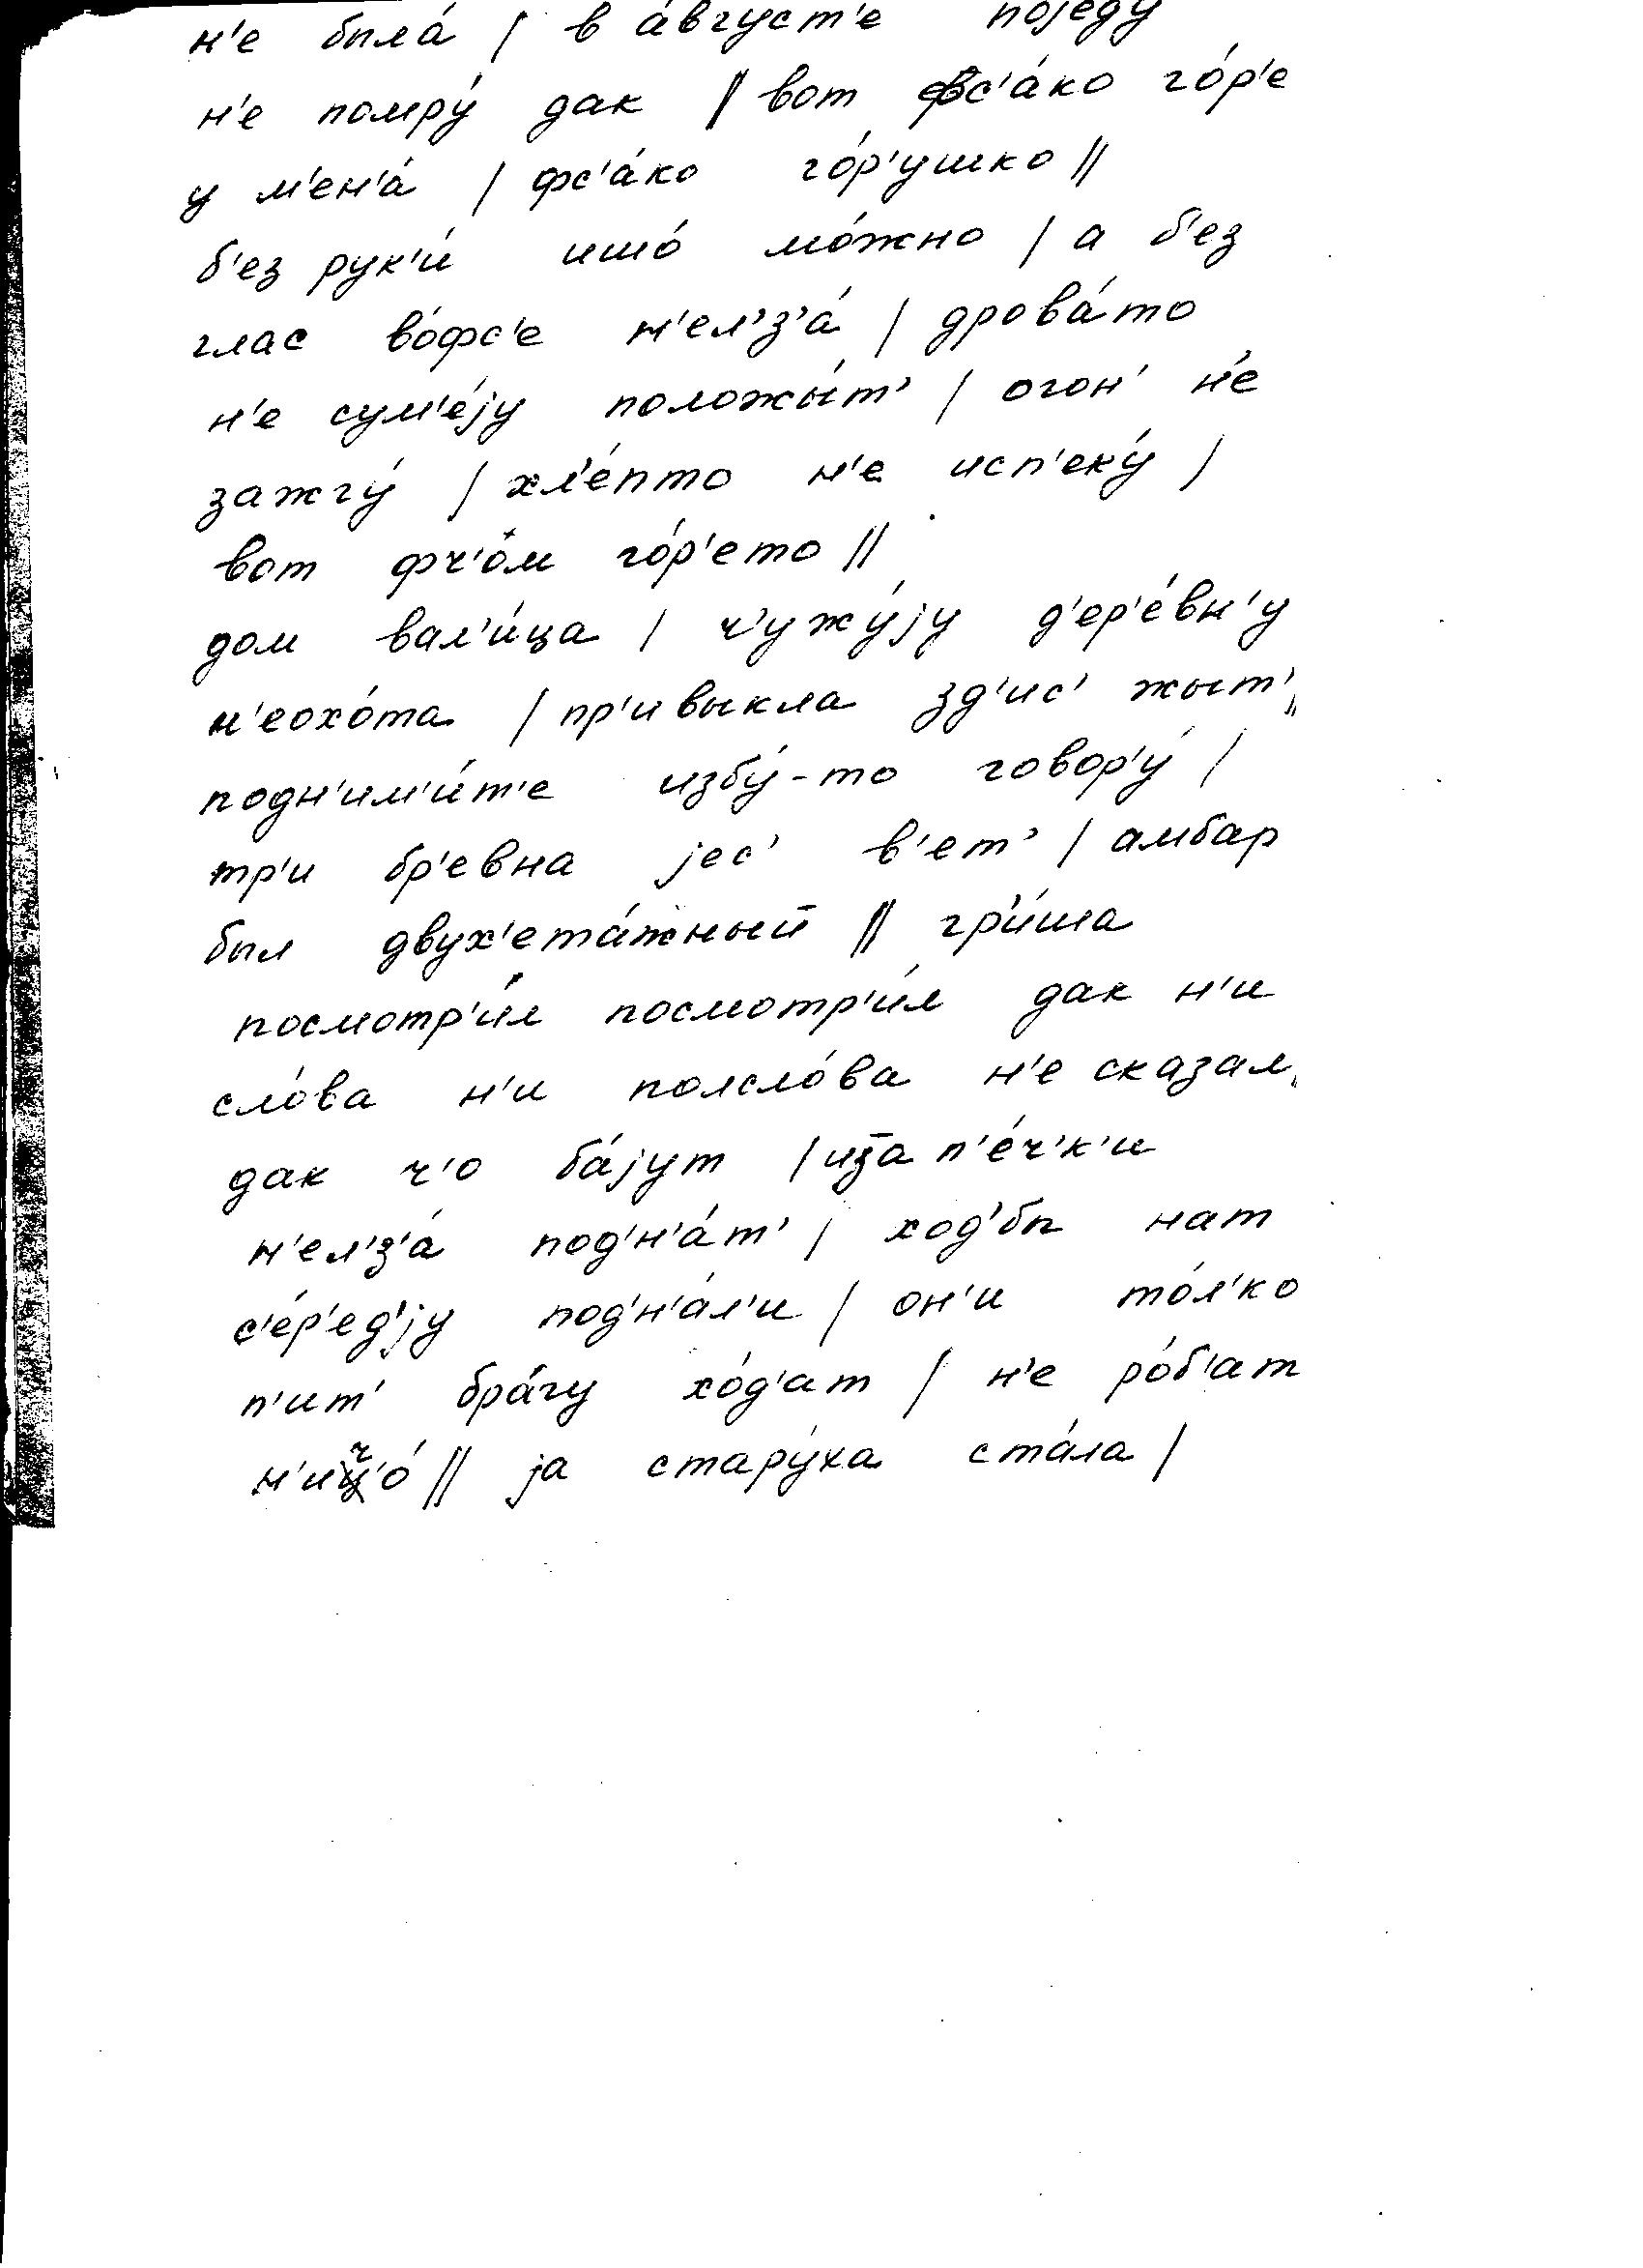 н'е была́ | в а́вгуст'е поjеду
н'е помру́ дак || вот фс'а́ко го́р'е
у м'ен'а́ | фс'а́ко го́р'ушко ||
б'ез рук'и́ ишо́ мо́жно | а б'ез
глас во́фс'е н'ел'з'а́ | дрова́то
н'е сум'е́jу положы́т' | огон' н'е
зажгу́ | хл'е́пто н'е исп'еку́ |
вот фч'о́м го́р'ето ||
дом вал'и́ца | ч'ужу́jу д'ер'е́вн'у
н'еохо́та | пр'ивыкла зд'ис' жыт' ||
подн'им'и́т'е избу́-то говор'у́ |
тр'и бр'евна jес' в'ет' | амбар
был двух'ета́жный || гр'и́ша
посмотр'и́л посмотр'и́л дак н'и
сло́ва н'и полсло́ва н'е сказал ||
дак ч'о ба́jут | иза п'е́ч'к'и
н'ел'з'а́ под'н'а́т' | ход'бп нат
с'е́р'ед'jу под'н'а́л'и | он'и то́л'ко
п'ит' бра́гу хо́д'ат | н'е ро́б'ат
н'ич'о́ || jа стару́ха ста́ла |